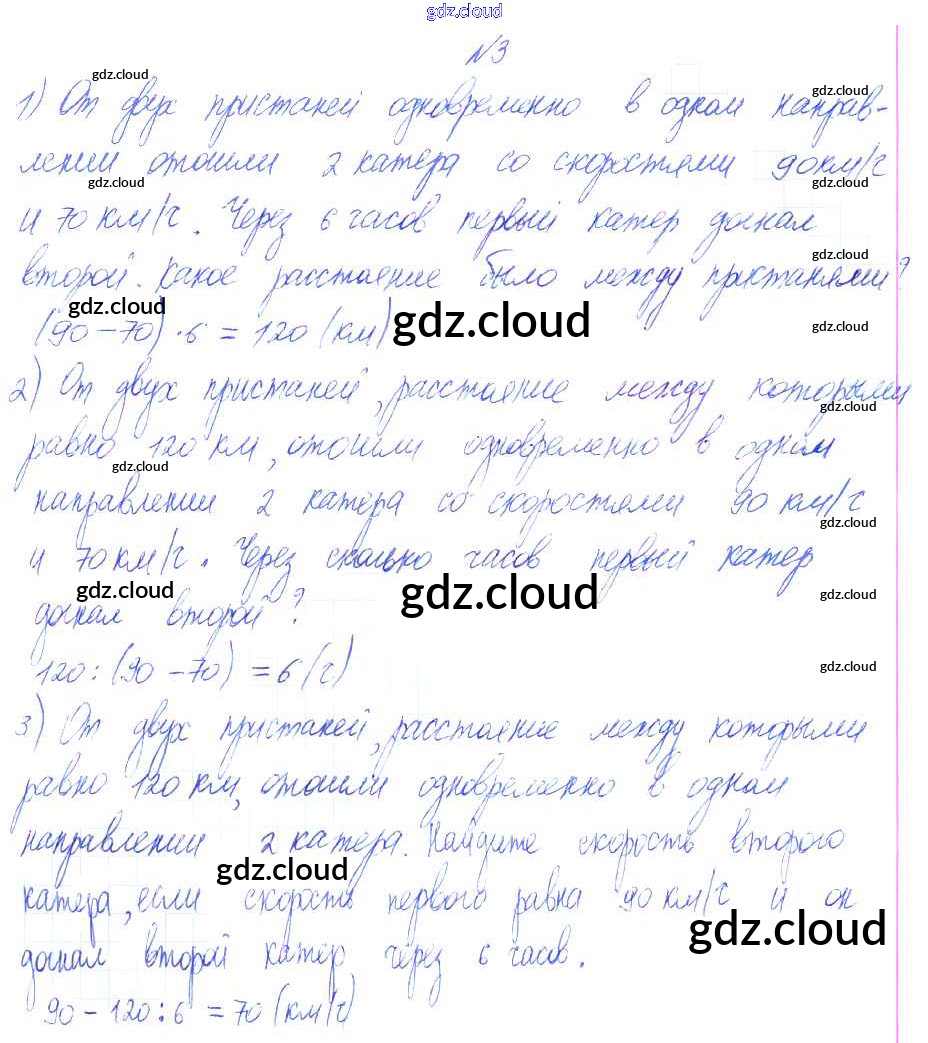 gdz.cloud
№3
gdz.cloud
gdz.cloud
1) От двух пристаней одновременно в одном направ-
лении отошли 2 катера со скоростями 90 км/ч
gdz.cloud
gdz.cloud
и 70 км/ч. Через 6 часов первый катер догнал
gdz.cloud
второй. Какое расстояние было между пристанями?
gdz.cloud
gdz.cloud
gdz.cloud
(90 - 70) · 6 = 120 (км)
2) От двух пристаней, расстояние между которыми
gdz.cloud
равно 120 км, отошли одновременно в одном
gdz.cloud
направлении 2 катера со скоростями 90 км/ч
gdz.cloud
и 70 км/ч. Через сколько часов первый катер
gdz.cloud
gdz.cloud
gdz.cloud
догнал второй?
120 : (90 - 70) = 6 (ч)
gdz.cloud
3) От двух пристаней, расстояние между которыми
равно 120 км, отошли одновременно в одном
направлении 2 катера. Найдите скорость второго
gdz.cloud
катера, если скорость первого равна 90 км/ч и он
gdz.cloud
догнал второй катер через 6 часов.
90 - 120 : 6 = 70 (км/ч)